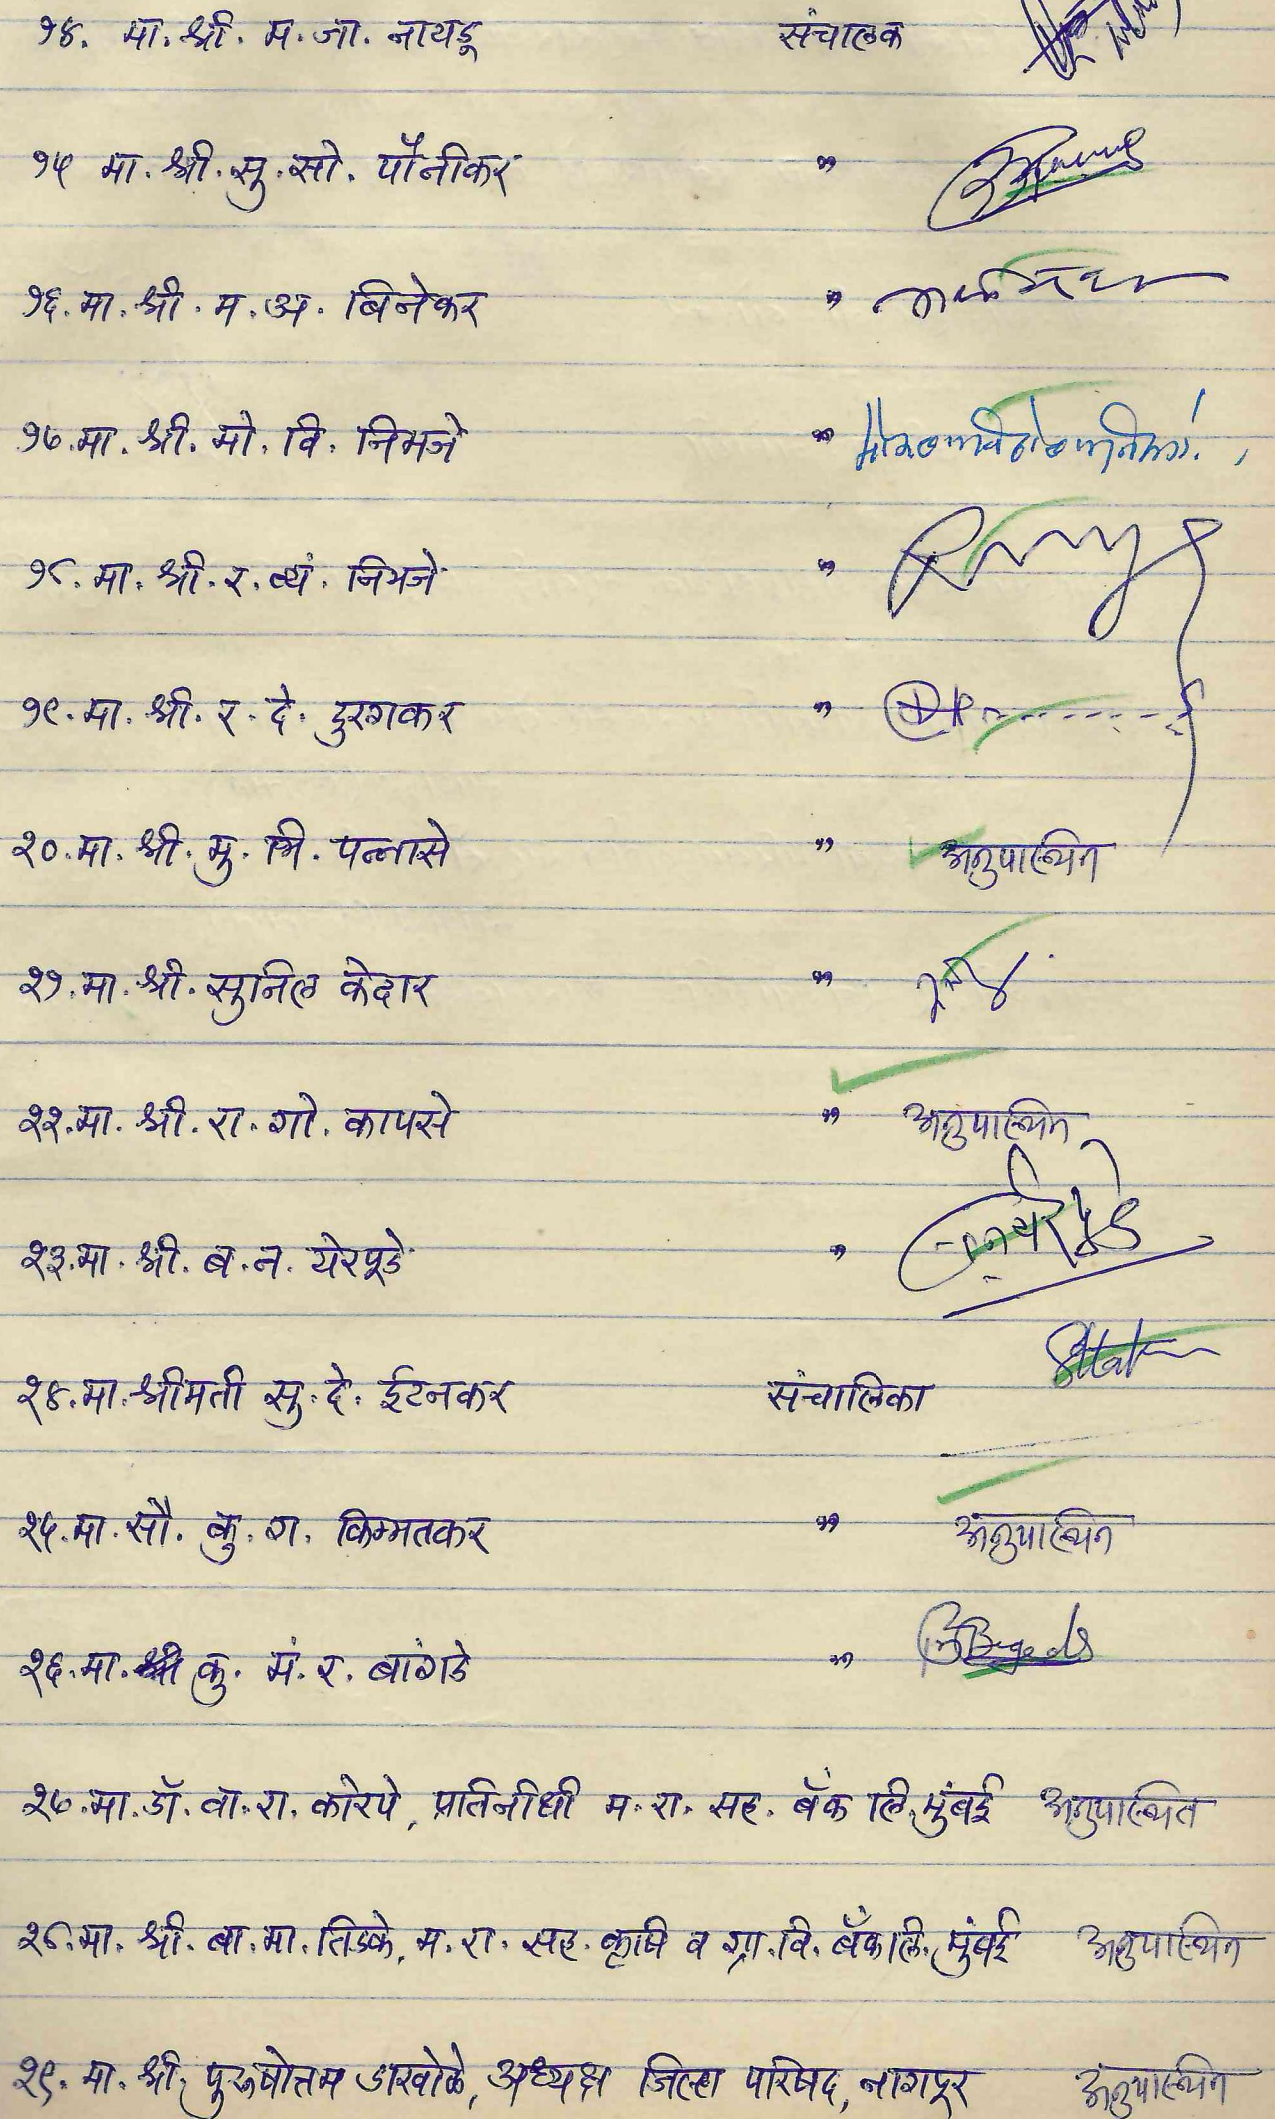 १४. मा. श्री. म. जा. नायडू संचालक
१५ मा. श्री. सु. सो. पौनीकर "
१६. मा. श्री. म. अ. बिनेकर "
१७. मा. श्री. मो. वि. निमजे "
१८. मा. श्री. र. व्यं. निमजे "
१९. मा. श्री. र. दे. दुरुगकर "
२०. मा. श्री. मु. भि. पन्नासे " अनुपास्थित
२१. मा. श्री. सुनिल केदार "
२२. मा. श्री. रा. गो. कापसे " अनुपास्थित
२३. मा. श्री. ब. न. येरपूडे "
२४. मा. श्रीमती सु. दे. ईटनकर संचालिका
२५. मा. सौ. कु. ग. किम्मतकर " अनुपास्थित
२६. मा. कु. मं. र. बांगडे "
२७. मा. डॉ. वा. रा. कोरपे, प्रतिनीधी म. रा. सह. बॅंक लि. मुंबई अनुपास्थित
२८. मा. श्री. बा. मा. तिडके, म. रा. सह. कृषि व ग्रा. वि. बॅंक लि. मुंबई अनुपास्थित
२९. मा. श्री. पुरूषोत्तम डाखोळे, अध्यक्ष जिल्हा परिषद, नागपूर अनुपास्थित